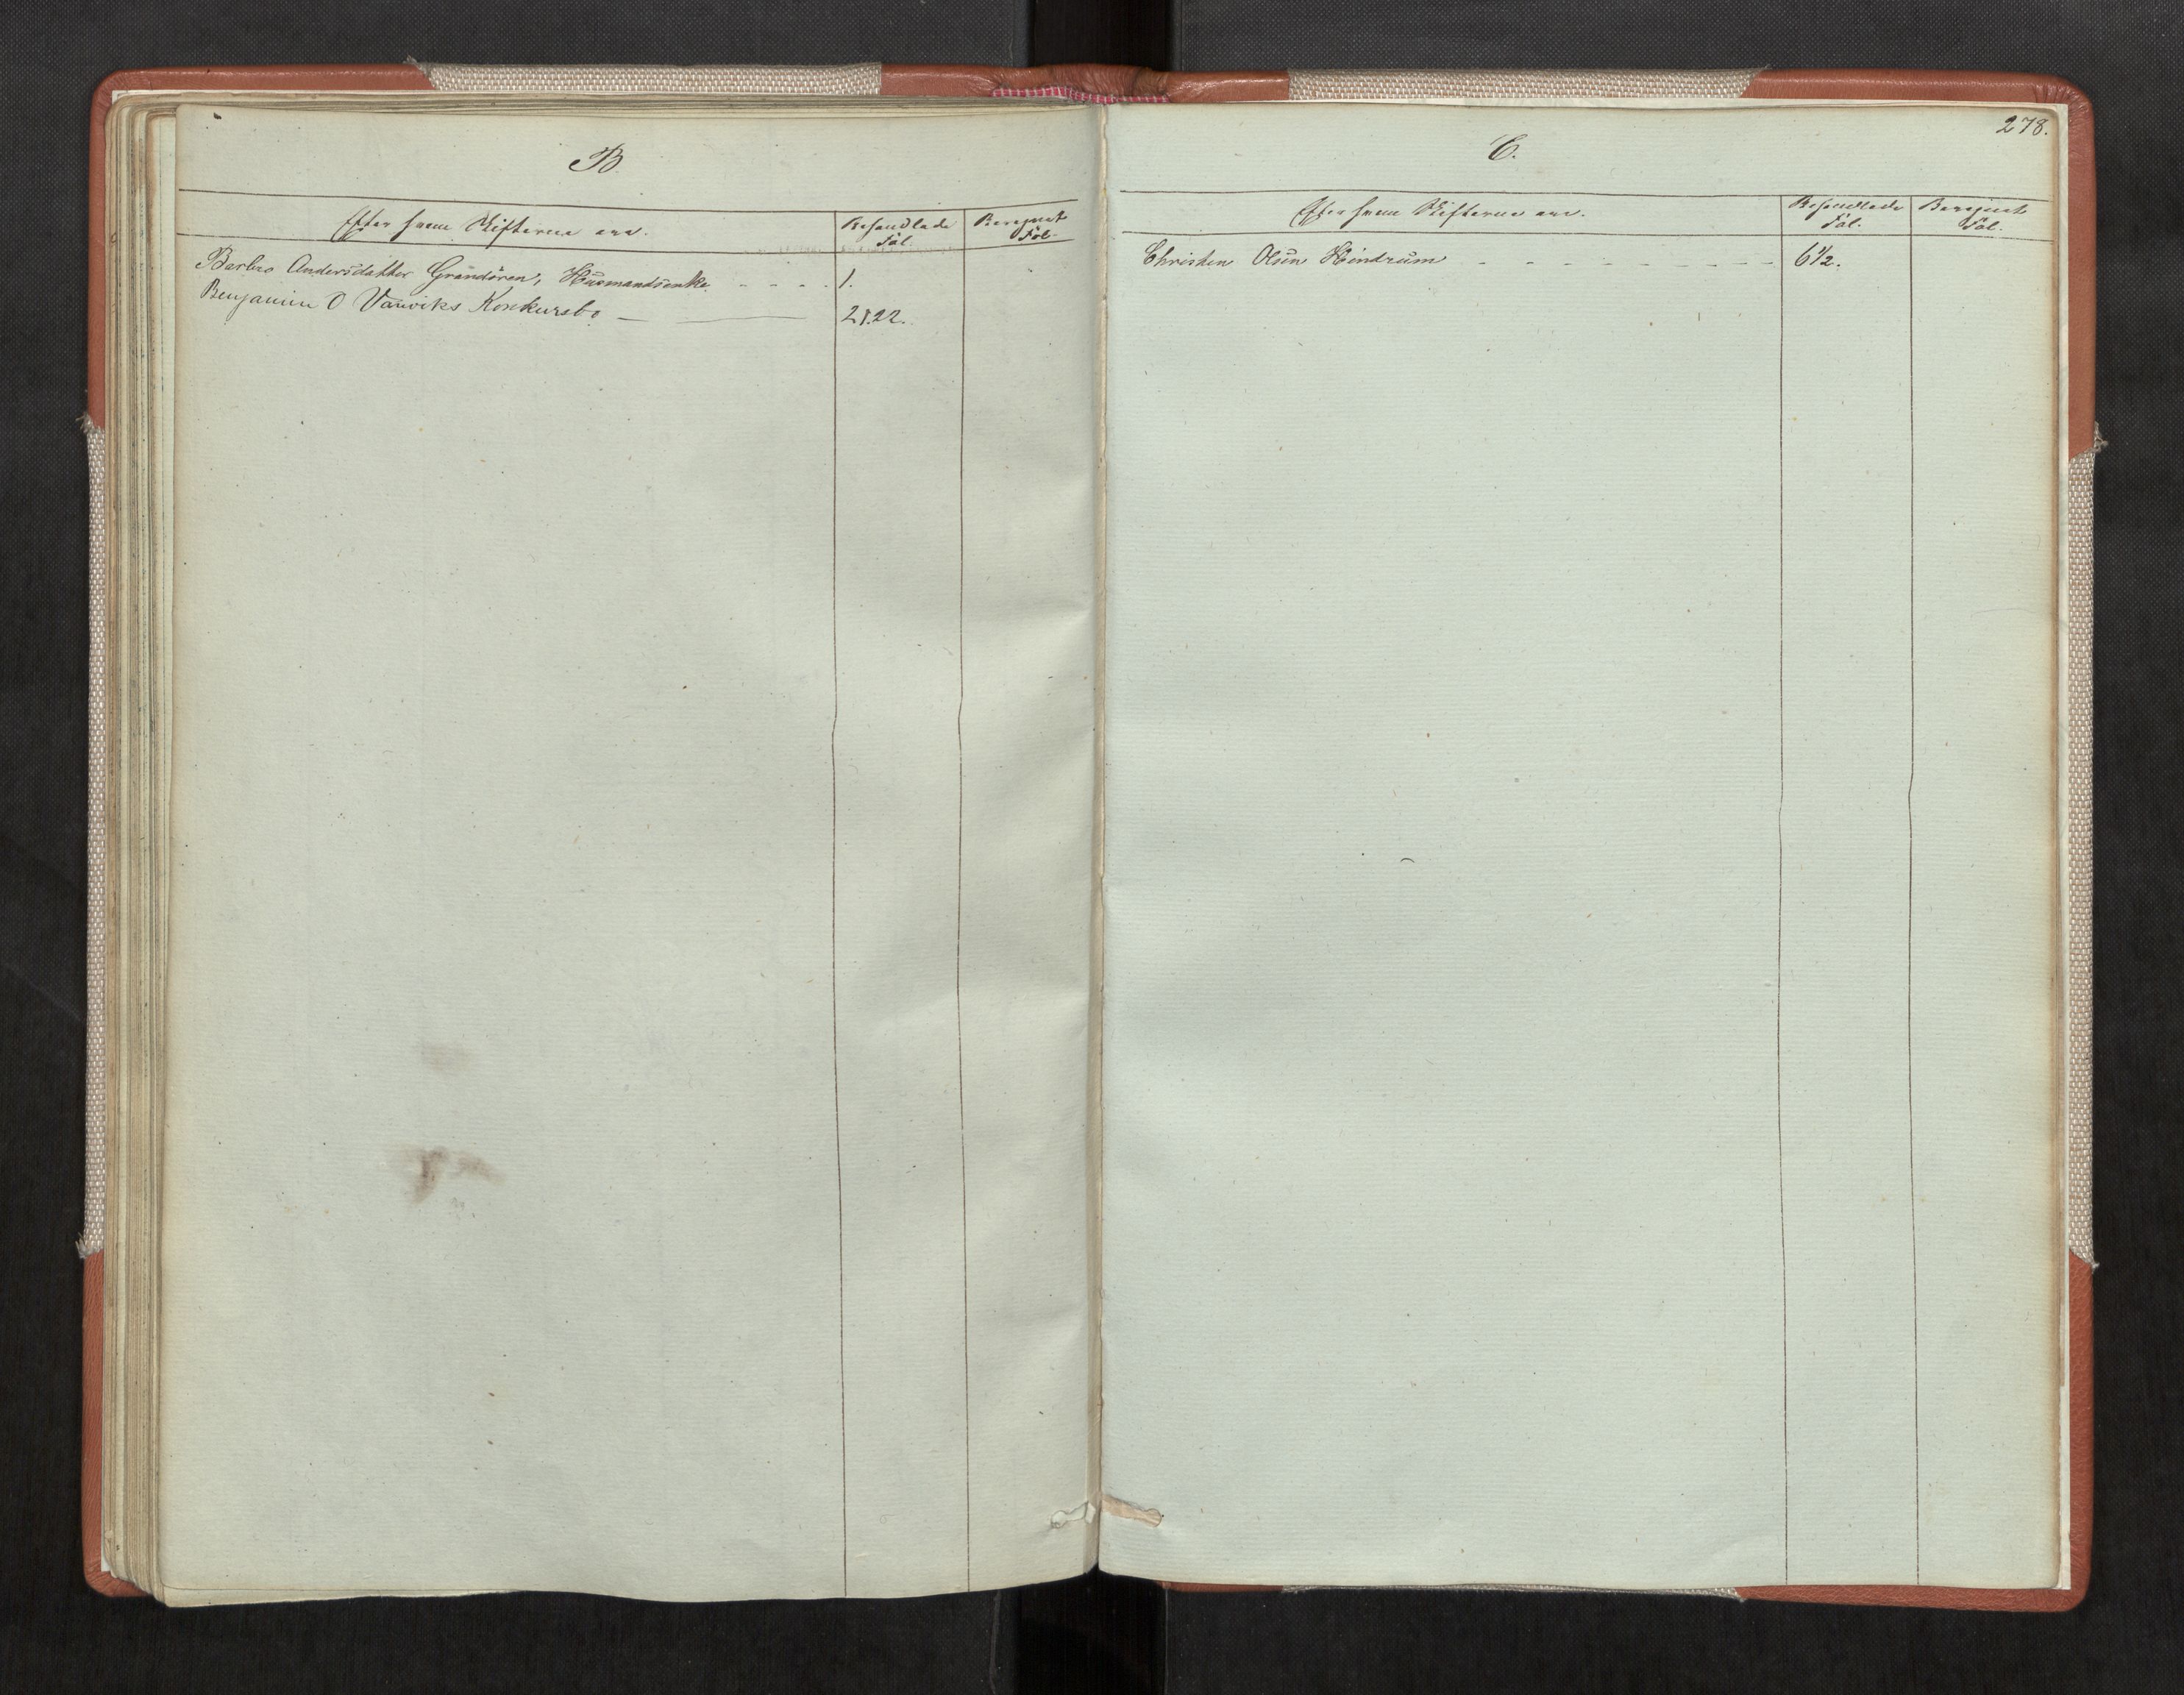 B.
Efter hvem Skifterne ere.
Behandlede
Fol.
Beregnet
Fol.
Barbro Andersdatter Grandören, Husmandsenke - - - - 1.
Benjamin O Vanviks Konkursbo — — 21.22.
278.
C.
Efter hvem Skifterne ere.
Behandlede
Fol.
Beregnet
Fol.
Christen Olsen Hindrum - - - - - - - - - 6½.